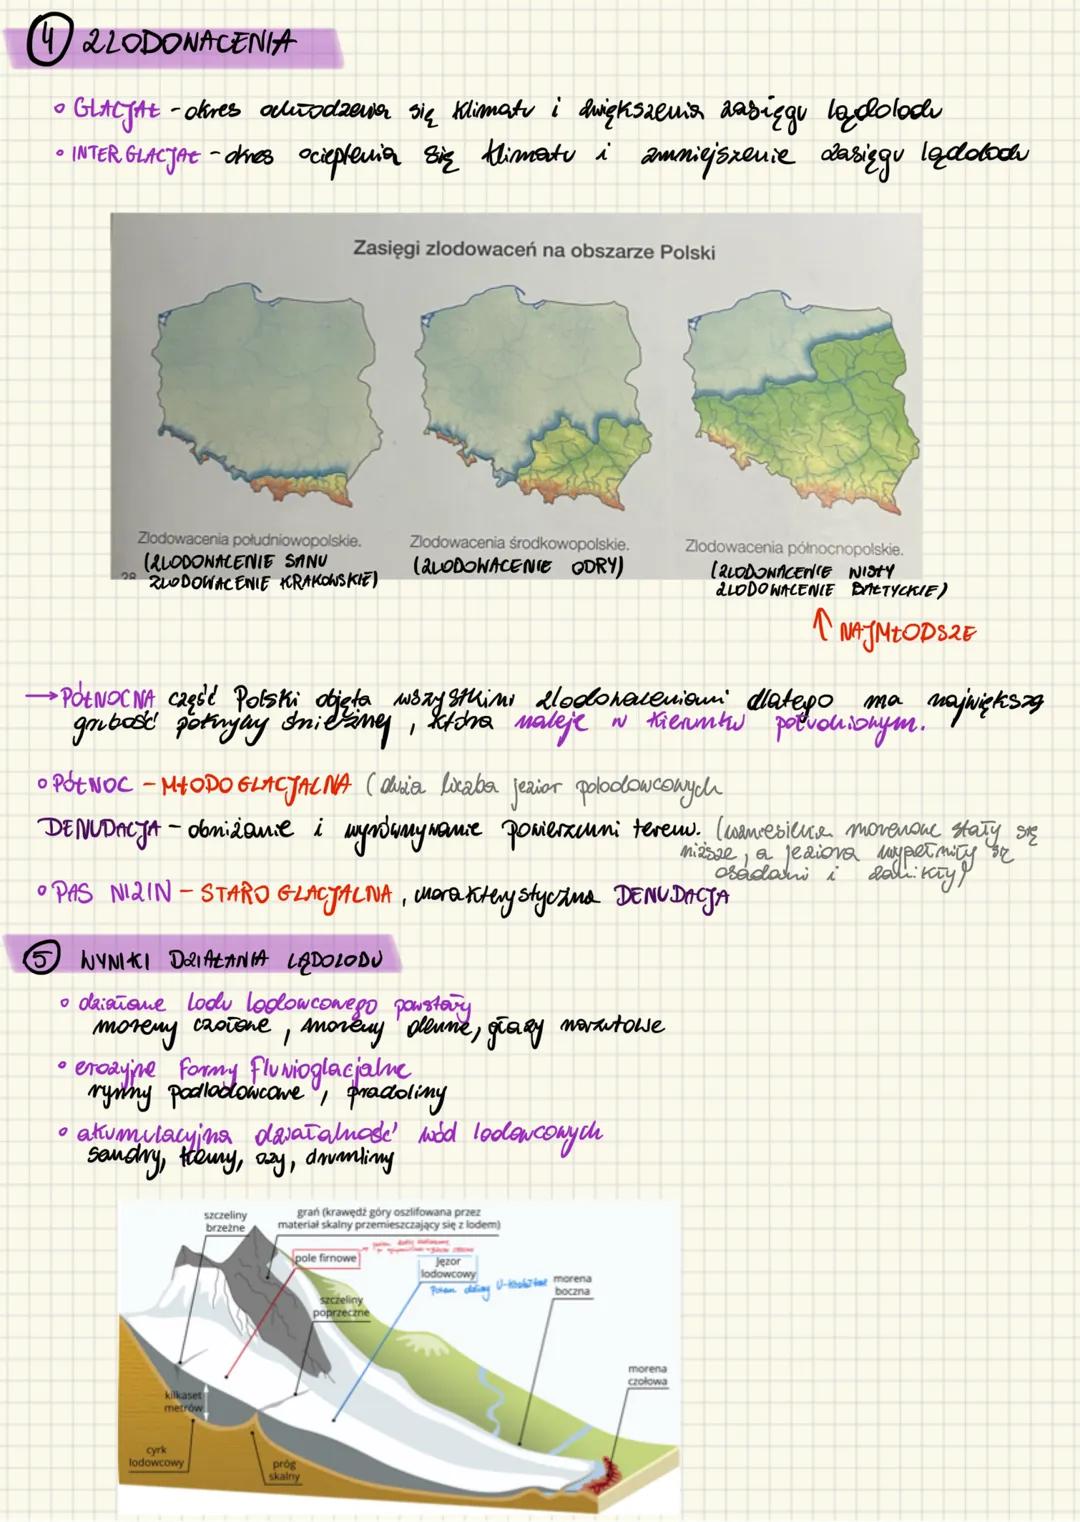 4 ZLODOWACENIA
GLACJAŁ - okres ochłodzenia się klimatu i zwiększenia zasięgu lądolodu
INTERGLACJAŁ - okres ocieplenia się klimatu i zmniejszenie zasięgu lądolodu
Zasięgi zlodowaceń na obszarze Polski
Zlodowacenia południowopolskie.
(ZLODOWACENIE SANU
ZLODOWACENIE KRAKOWSKIE)
28
Zlodowacenia środkowopolskie.
(ZLODOWACENIE ODRY)
Zlodowacenia północnopolskie.
(ZLODOWACENIE WISŁY
ZLODOWACENIE BAŁTYCKIE)
↑ NAJMŁODSZE
→ PÓŁNOCNA część Polski objęta wszystkimi zlodowaceniami dlatego ma największą
grubość pokrywy śnieżnej, która maleje w kierunku południowym.
PÓŁNOC - MŁODOGLACJALNA (duża liczba jezior polodowcowych
DENUDACJA - obniżanie i wyrównywanie powierzchni terenu. (wzniesienia morenowe stały się
niższe, a jeziora wypełniły się
osadami i zanikły)
PAS NIZIN - STAROGLACJALNA, charakterystyczna DENUDACJA
5 WYNIKI DZIAŁANIA LĄDOLODU
działane lodu lodowcowego powstały
moreny czołowe, moreny denne, głazy narzutowe
erozyjne formy fluwioglacjalne
rynny podlodowcowe, pradoliny
akumulacyjna działalność wód lodowcowych
sandry, kemy, ozy, drumliny
szczeliny
brzeżne
grań (krawędź góry oszlifowana przez
materiał skalny przemieszczający się z lodem)
pole firnowe
Jęzor
lodowcowy
Potem doliny U-kształtne
szczeliny
poprzeczne
morena
boczna
morena
czołowa
kilkaset
metrów
cyrk
lodowcowy
próg
skalny